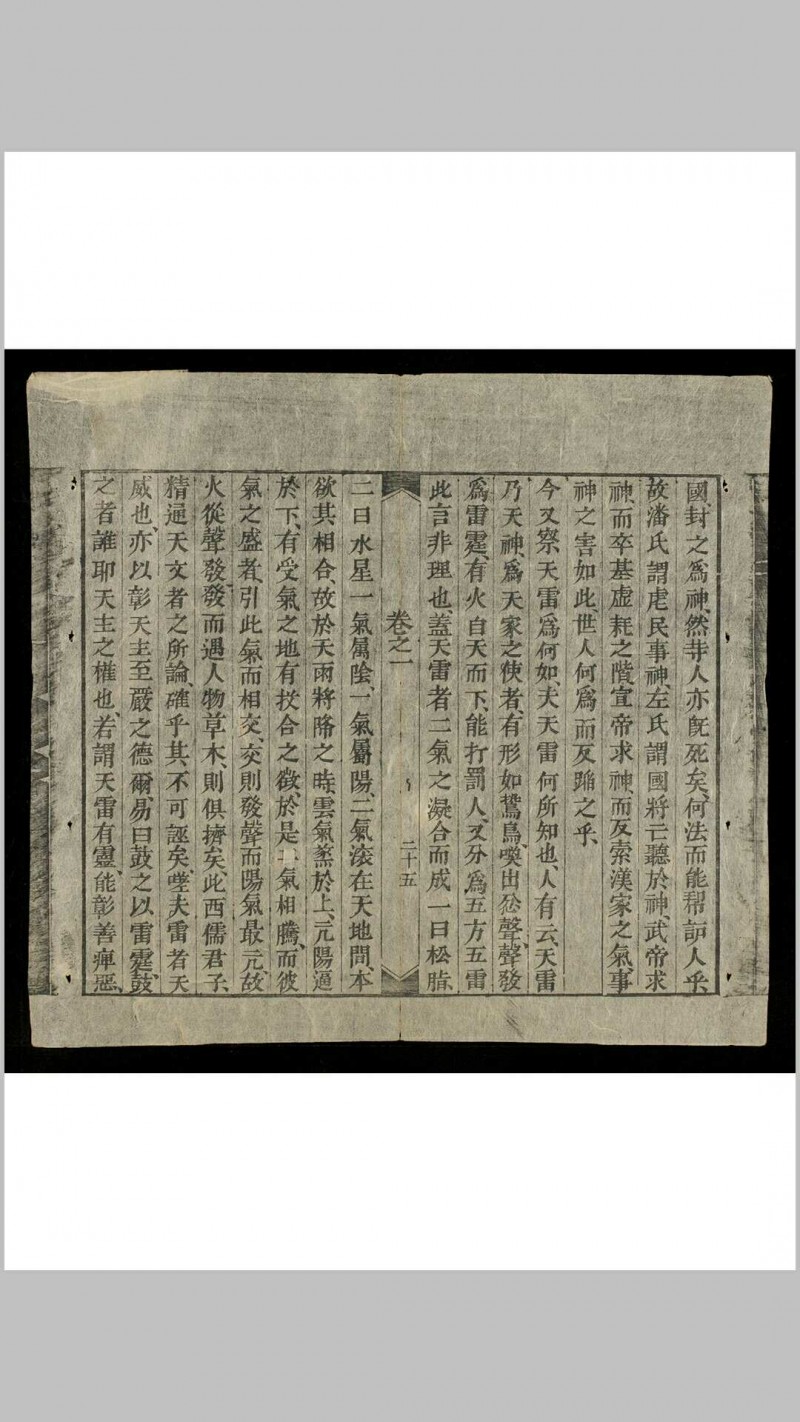 國、封之爲神、然昔人亦旣死矣、何法而能帮訪人乎、
故潘氏謂虐民事神、左氏謂國將亡聽於神、武帝求
神、而卒基虛耗之階、宣帝求神、而反索漢家之氣、事
神之害如此、世人何爲而反蹈之乎、
今又察天雷爲何如、夫天雷何所知也、人有云、天雷
乃天神、爲天家之使者、有形如鷙鳥、喚出忿聲、聲發
爲雷霆、有火自天而下、能打罰人、又分爲五方五雷
此言非理也、蓋天雷者二氣之凝合而成一曰松脂、
卷之一
二十五
二曰水星一氣屬陰、一氣屬陽、二氣滚在天地間、本
欲其相合、故於天雨將降之時、雲氣蒸於上、亢陽逼
於下、有受氣之地有投合之徴、於是二氣相騰、而彼
氣之盛者、引此氣而相交、交則發聲而陽氣最亢、故
火從聲發、發而遇人物草木、則俱擠矣、此西儒君子、
精通天文者之所論、確乎其不可誣矣、噫夫雷者天
威也、亦以彰天主至嚴之德爾、易曰鼓之以雷霆、鼓
之者誰耶天主之權也、若謂天雷有靈、能彰善瘅惡、